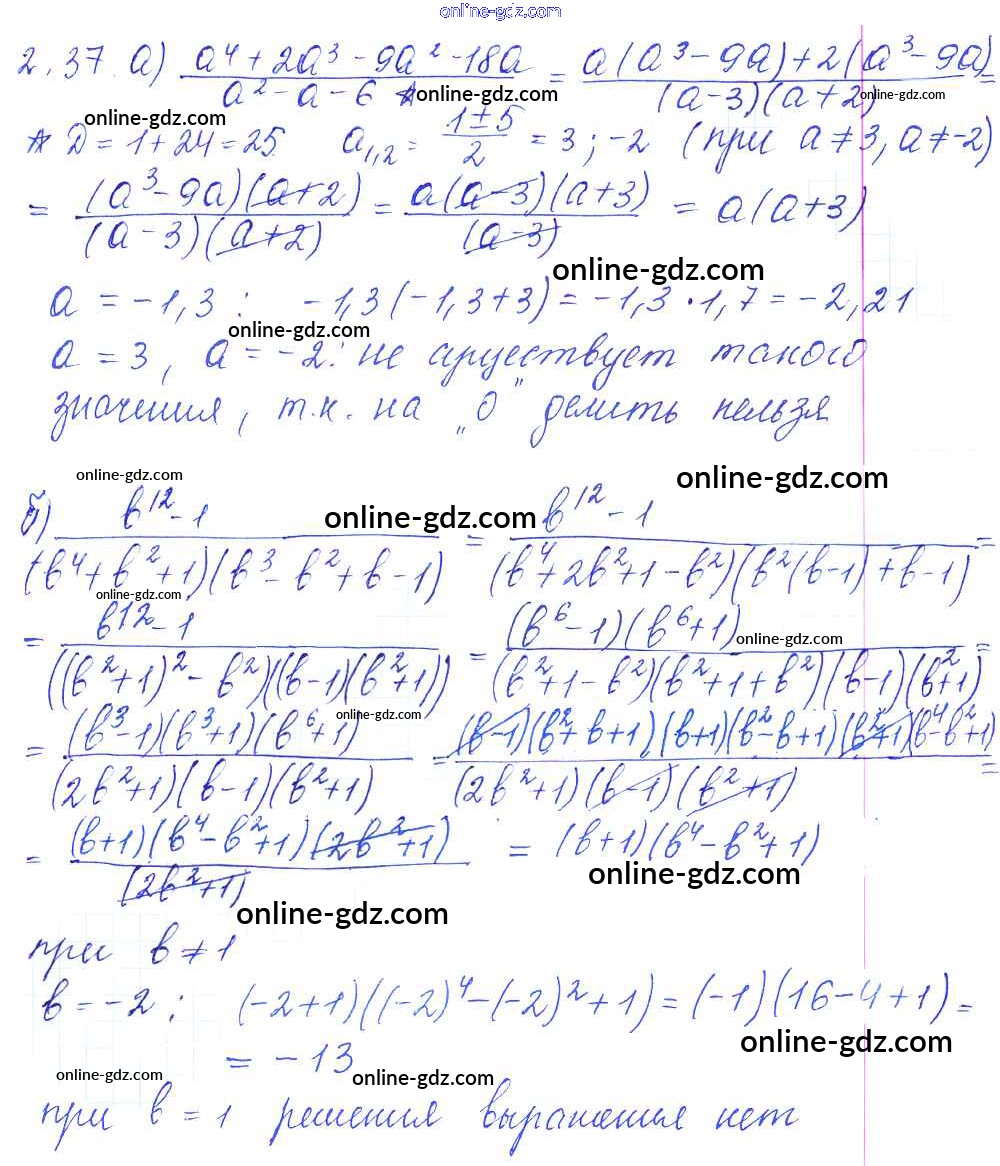 online-gdz.com
2.37 а) (a⁴ + 2a³ - 9a² - 18a)/(a² - a - 6) * = (a(a³ - 9a) + 2(a³ - 9a))/((a-3)(a+2)) =
online-gdz.com online-gdz.com
online-gdz.com
* D = 1 + 24 = 25 a₁,₂ = (1 ± 5)/2 = 3; -2 (при a ≠ 3, a ≠ -2)
= ((a³ - 9a)(a+2))/((a-3)(a+2)) = (a(a-3)(a+3))/((a-3)) = a(a+3)
online-gdz.com
a = -1,3 : -1,3(-1,3+3) = -1,3 · 1,7 = -2,21
online-gdz.com
a = 3, a = -2: не существует такого
значения, т.к. на „0" делить нельзя
online-gdz.com online-gdz.com
б) (b¹² - 1)/((b⁴ + b² + 1)(b³ - b² + b - 1)) = (b¹² - 1)/((b⁴ + 2b² + 1 - b²)(b²(b-1) + b - 1)) =
online-gdz.com
online-gdz.com
= (b¹² - 1)/(((b²+1)² - b²)((b-1)(b²+1))) = ((b⁶ - 1)(b⁶ + 1))/((b²+1-b²)(b²+1+b²)(b-1)(b²+1))
online-gdz.com
= ((b³-1)(b³+1)(b⁶+1))/((2b²+1)(b-1)(b²+1)) = ((b-1)(b²+b+1)(b+1)(b²-b+1)(b²+1)(b⁴-b²+1))/((2b²+1)(b-1)(b²+1)) =
online-gdz.com
= ((b+1)(b⁴-b²+1)(2b²+1))/((2b²+1)) = (b+1)(b⁴-b²+1)
online-gdz.com
online-gdz.com
при b ≠ 1
b = -2 ; (-2+1)((-2)⁴-(-2)²+1) = (-1)(16-4+1) =
online-gdz.com
= -13
online-gdz.com online-gdz.com
при b = 1 решения выраженья нет